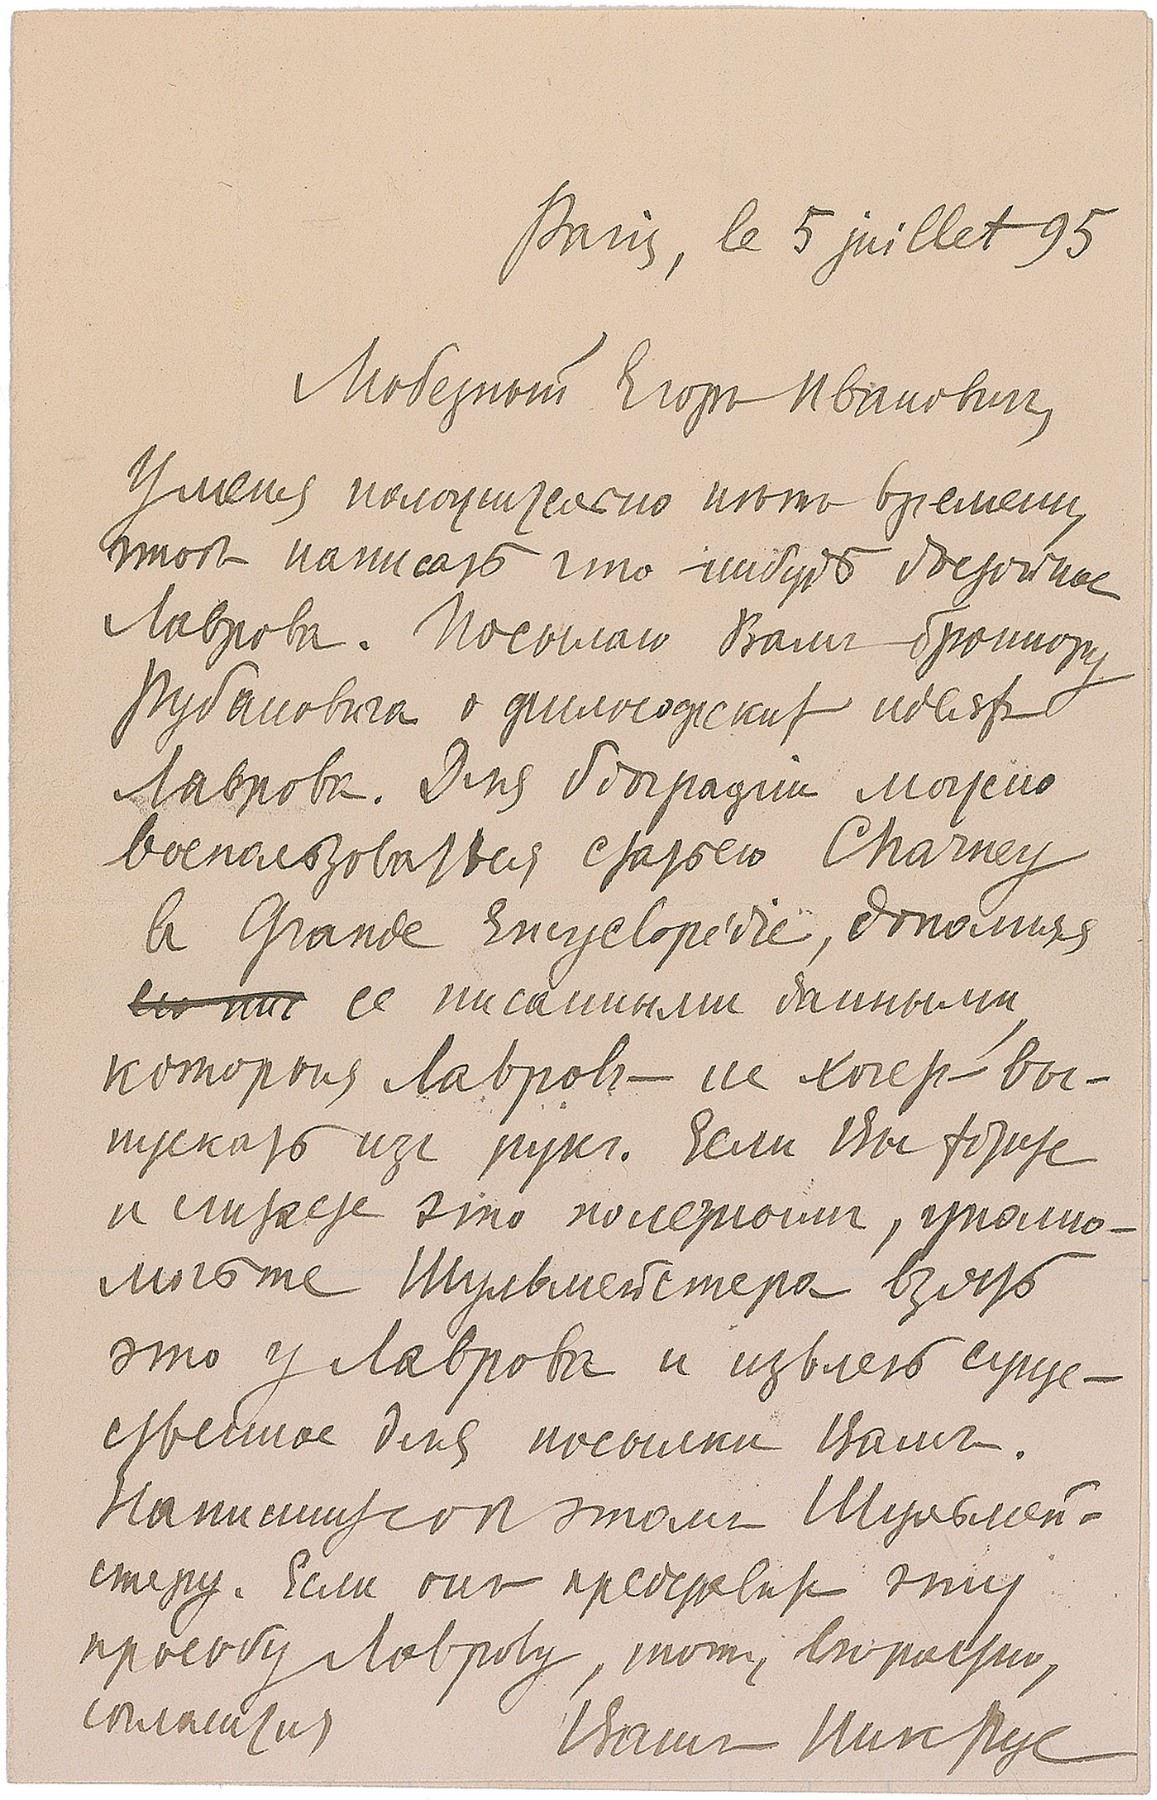 Paris, le 5 juillet 95
Любезный Егоръ Ивановичъ,
У меня положительно нѣтъ времени,
чтобъ написать что-нибудь достойное
Лаврова. Посылаю Вамъ брошюру
Рубановича о философскихъ идеяхъ
Лаврова. Для біографіи можно
воспользоваться статьею Charney
в Grande Encyclopédie, дополняя
ее писанными данными,
которыя Лавровъ не хочетъ вы-
пускать изъ рукъ. Если Вы
и считаете это полезнымъ, уполно-
мочьте Шульмейстера взять
это у Лаврова и извлечь суще-
ственное для посылки Вамъ.
Напишите об этомъ Шульмей-
стеру. Если онъ представитъ эту
просьбу Лаврову, тотъ, вѣроятно,
согласится
Вашъ Ник Рус